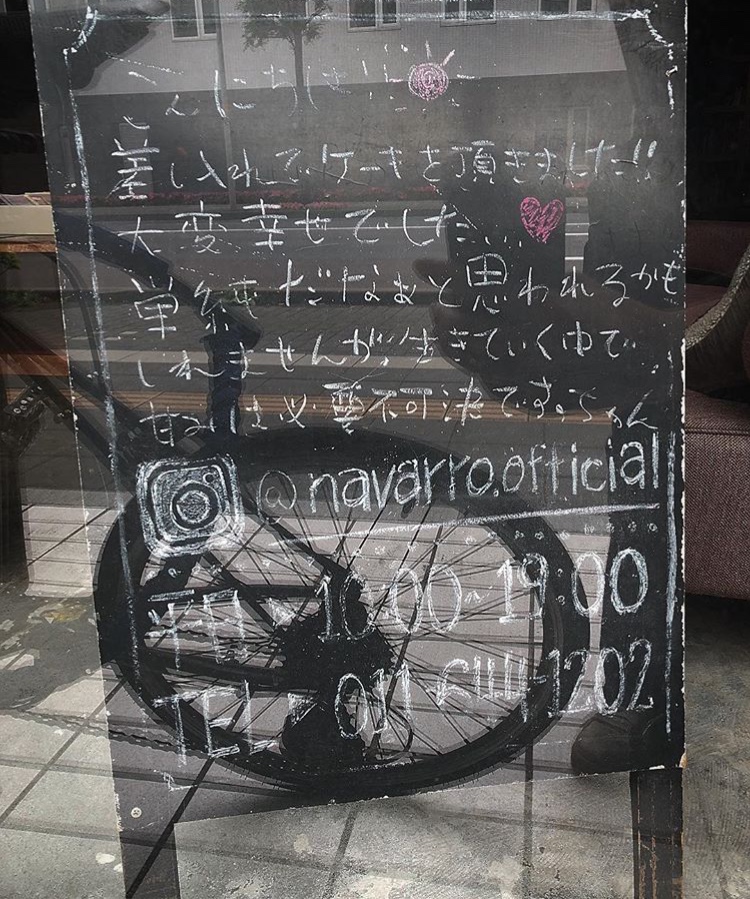 こんにちは!!
差し入れでケーキを頂きました!!
大変幸せでした...
単純だなぁと思われるかも
しれませんが、生きていく中で
甘みは必要不可決です。ちゃん
@navarro.official
平日 10:00~19:00
TEL 011 1202